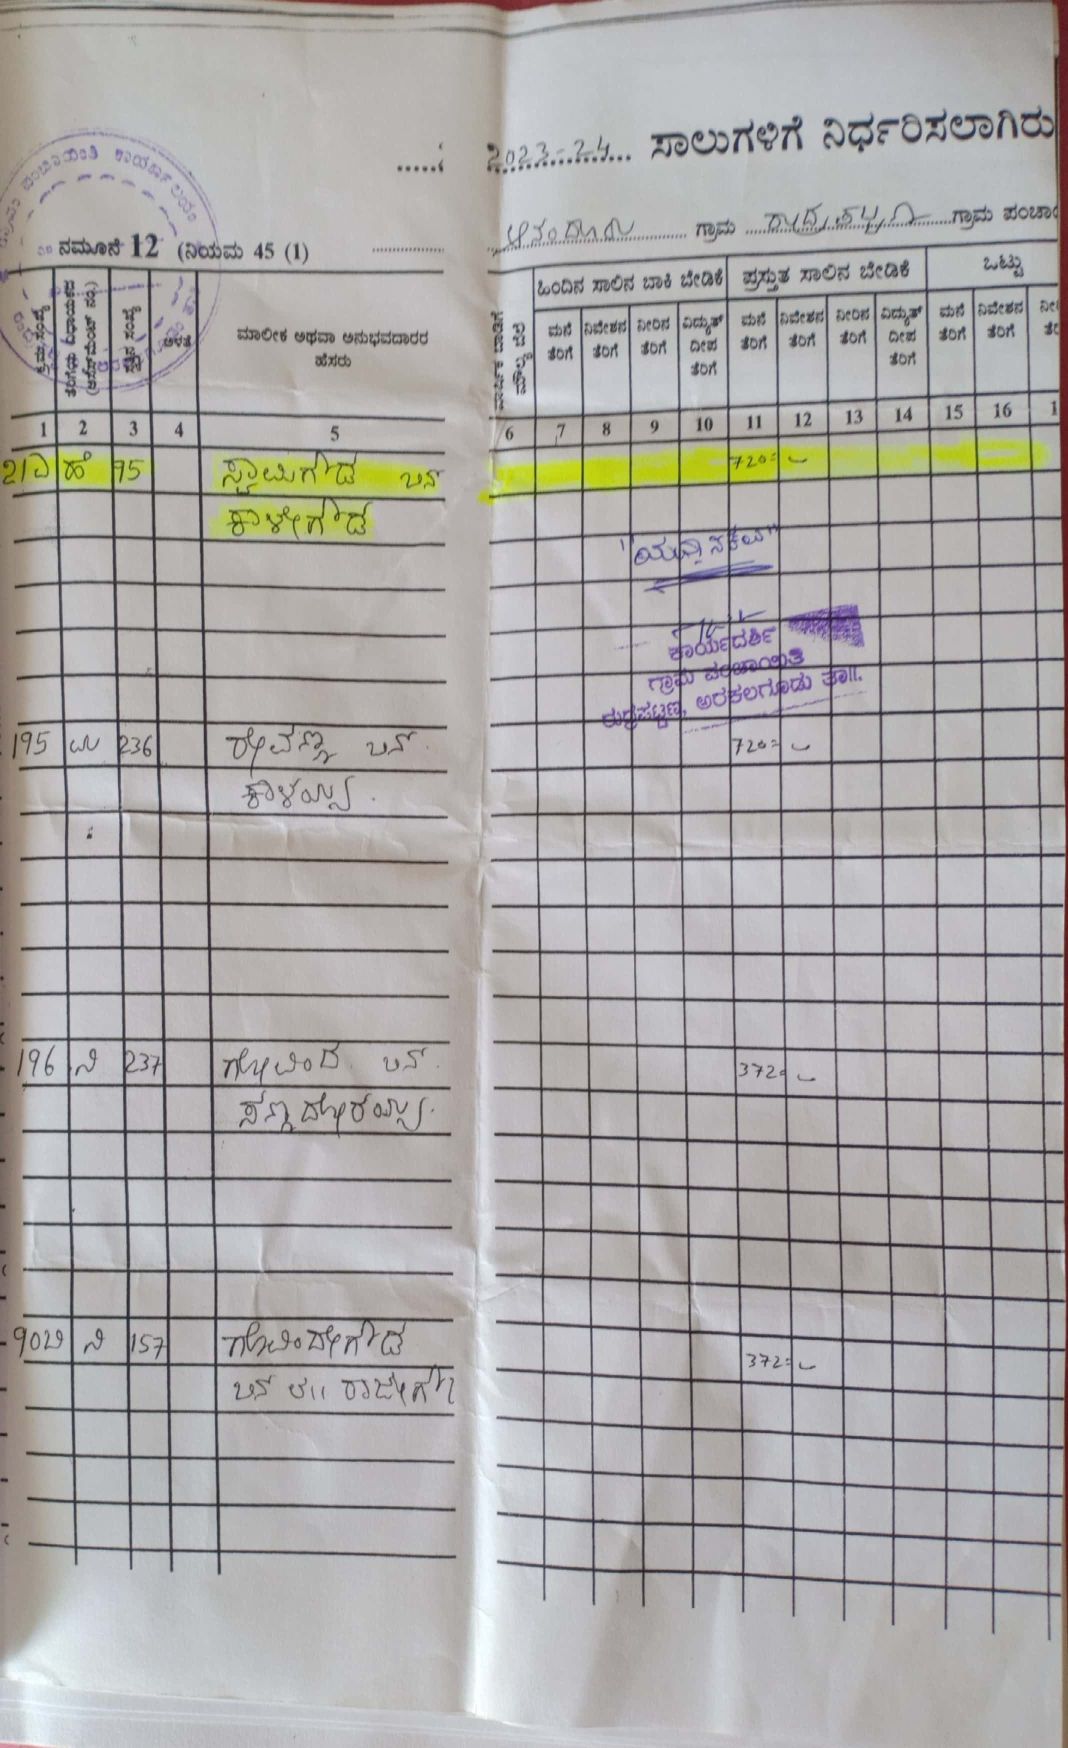 2023-24 ಸಾಲುಗಳಿಗೆ ನಿರ್ಧರಿಸಲಾಗಿರು
ಗ್ರಾಮ ಪಂಚಾಯಿತಿ ಕಾರ್ಯಾಲಯ
ಗ್ರಾಮ ರುದ್ರಪಟ್ಟಣ ಗ್ರಾಮ ಪಂಚಾ
ನಮೂನೆ 12 (ನಿಯಮ 45 (1)
ಹಿಂದಿನ ಸಾಲಿನ ಬಾಕಿ ಬೇಡಿಕೆ ಪ್ರಸ್ತುತ ಸಾಲಿನ ಬೇಡಿಕೆ ಒಟ್ಟು
ಕ್ರಮ ಸಂಖ್ಯೆ
ತೆರಿಗೆಯ ವಿಧಾಯಕದ
(ಅಸೆಸ್‌ಮೆಂಟ್ ನಂ.)
ಸಂಖ್ಯೆ
ಮಾಲೀಕ ಅಥವಾ ಅನುಭವದಾರರ
ಹೆಸರು
ವಾರ್ಷಿಕ ಬಾಡಿಗೆ
ಮೌಲ್ಯ ಬೆಲೆ
ಮನೆ ನಿವೇಶನ ನೀರಿನ ವಿದ್ಯುತ್ ಮನೆ ನಿವೇಶನ ನೀರಿನ ವಿದ್ಯುತ್ ಮನೆ ನಿವೇಶನ ನೀ
ತೆರಿಗೆ ತೆರಿಗೆ ತೆರಿಗೆ ದೀಪ ತೆರಿಗೆ ತೆರಿಗೆ ತೆರಿಗೆ ದೀಪ ತೆರಿಗೆ ತೆರಿಗೆ ತೆ
ತೆರಿಗೆ ತೆರಿಗೆ
1 2 3 4 5 6 7 8 9 10 11 12 13 14 15 16 1
21ಎ ಹೆ 95 ಸ್ವಾಮಿಗೌಡ ಬಿನ್ 720=
ಕಾಳೇಗೌಡ
"ಯಥಾ ನಕಲು"
ಕಾರ್ಯದರ್ಶಿ
ಗ್ರಾಮ ಪಂಚಾಯಿತಿ
ರುದ್ರಪಟ್ಟಣ, ಅರಕಲಗೂಡು ತಾ||.
195 ಮ 236 ರೇವಣ್ಣ ಬಿನ್. 720=
ಕಾಳಯ್ಯ.
196 ನಿ 237 ಗೋವಿಂದ ಬಿನ್. 372=
ಸಣ್ಣದೇರಯ್ಯ.
90ಬಿ ನಿ 157 ಗೋವಿಂದೇಗೌಡ 372=
ಬಿನ್ ಲ|| ರಾಜೇಗೌ